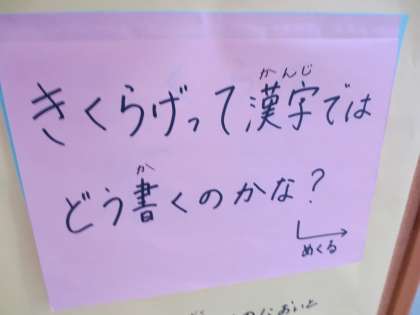 きくらげって漢字では
かんじ
どう書くのかな?
か
めくる